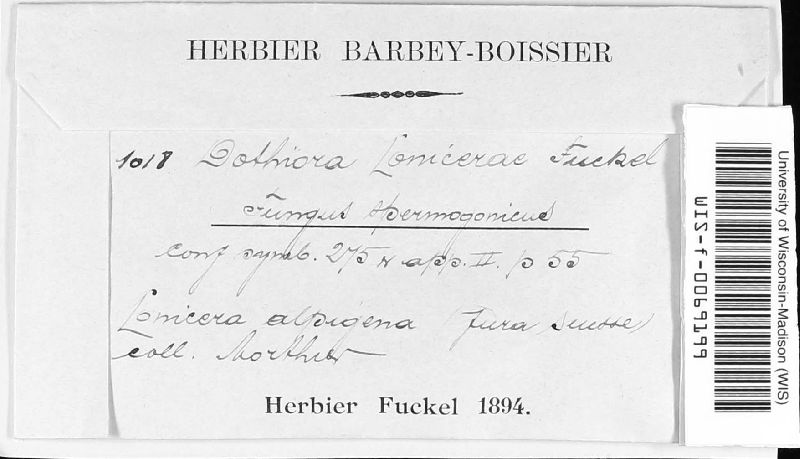 HERBIER BARBEY-BOISSIER
1018 Dothiora Lonicerae Fuckel
Fungus spermogonicus
conf symb. 275 & app. II. p 55
Lonicera alpigena (Jura suisse)
coll. Morthier
Herbier Fuckel 1894.
University of Wisconsin-Madison (WIS)
WIS-f-0069199